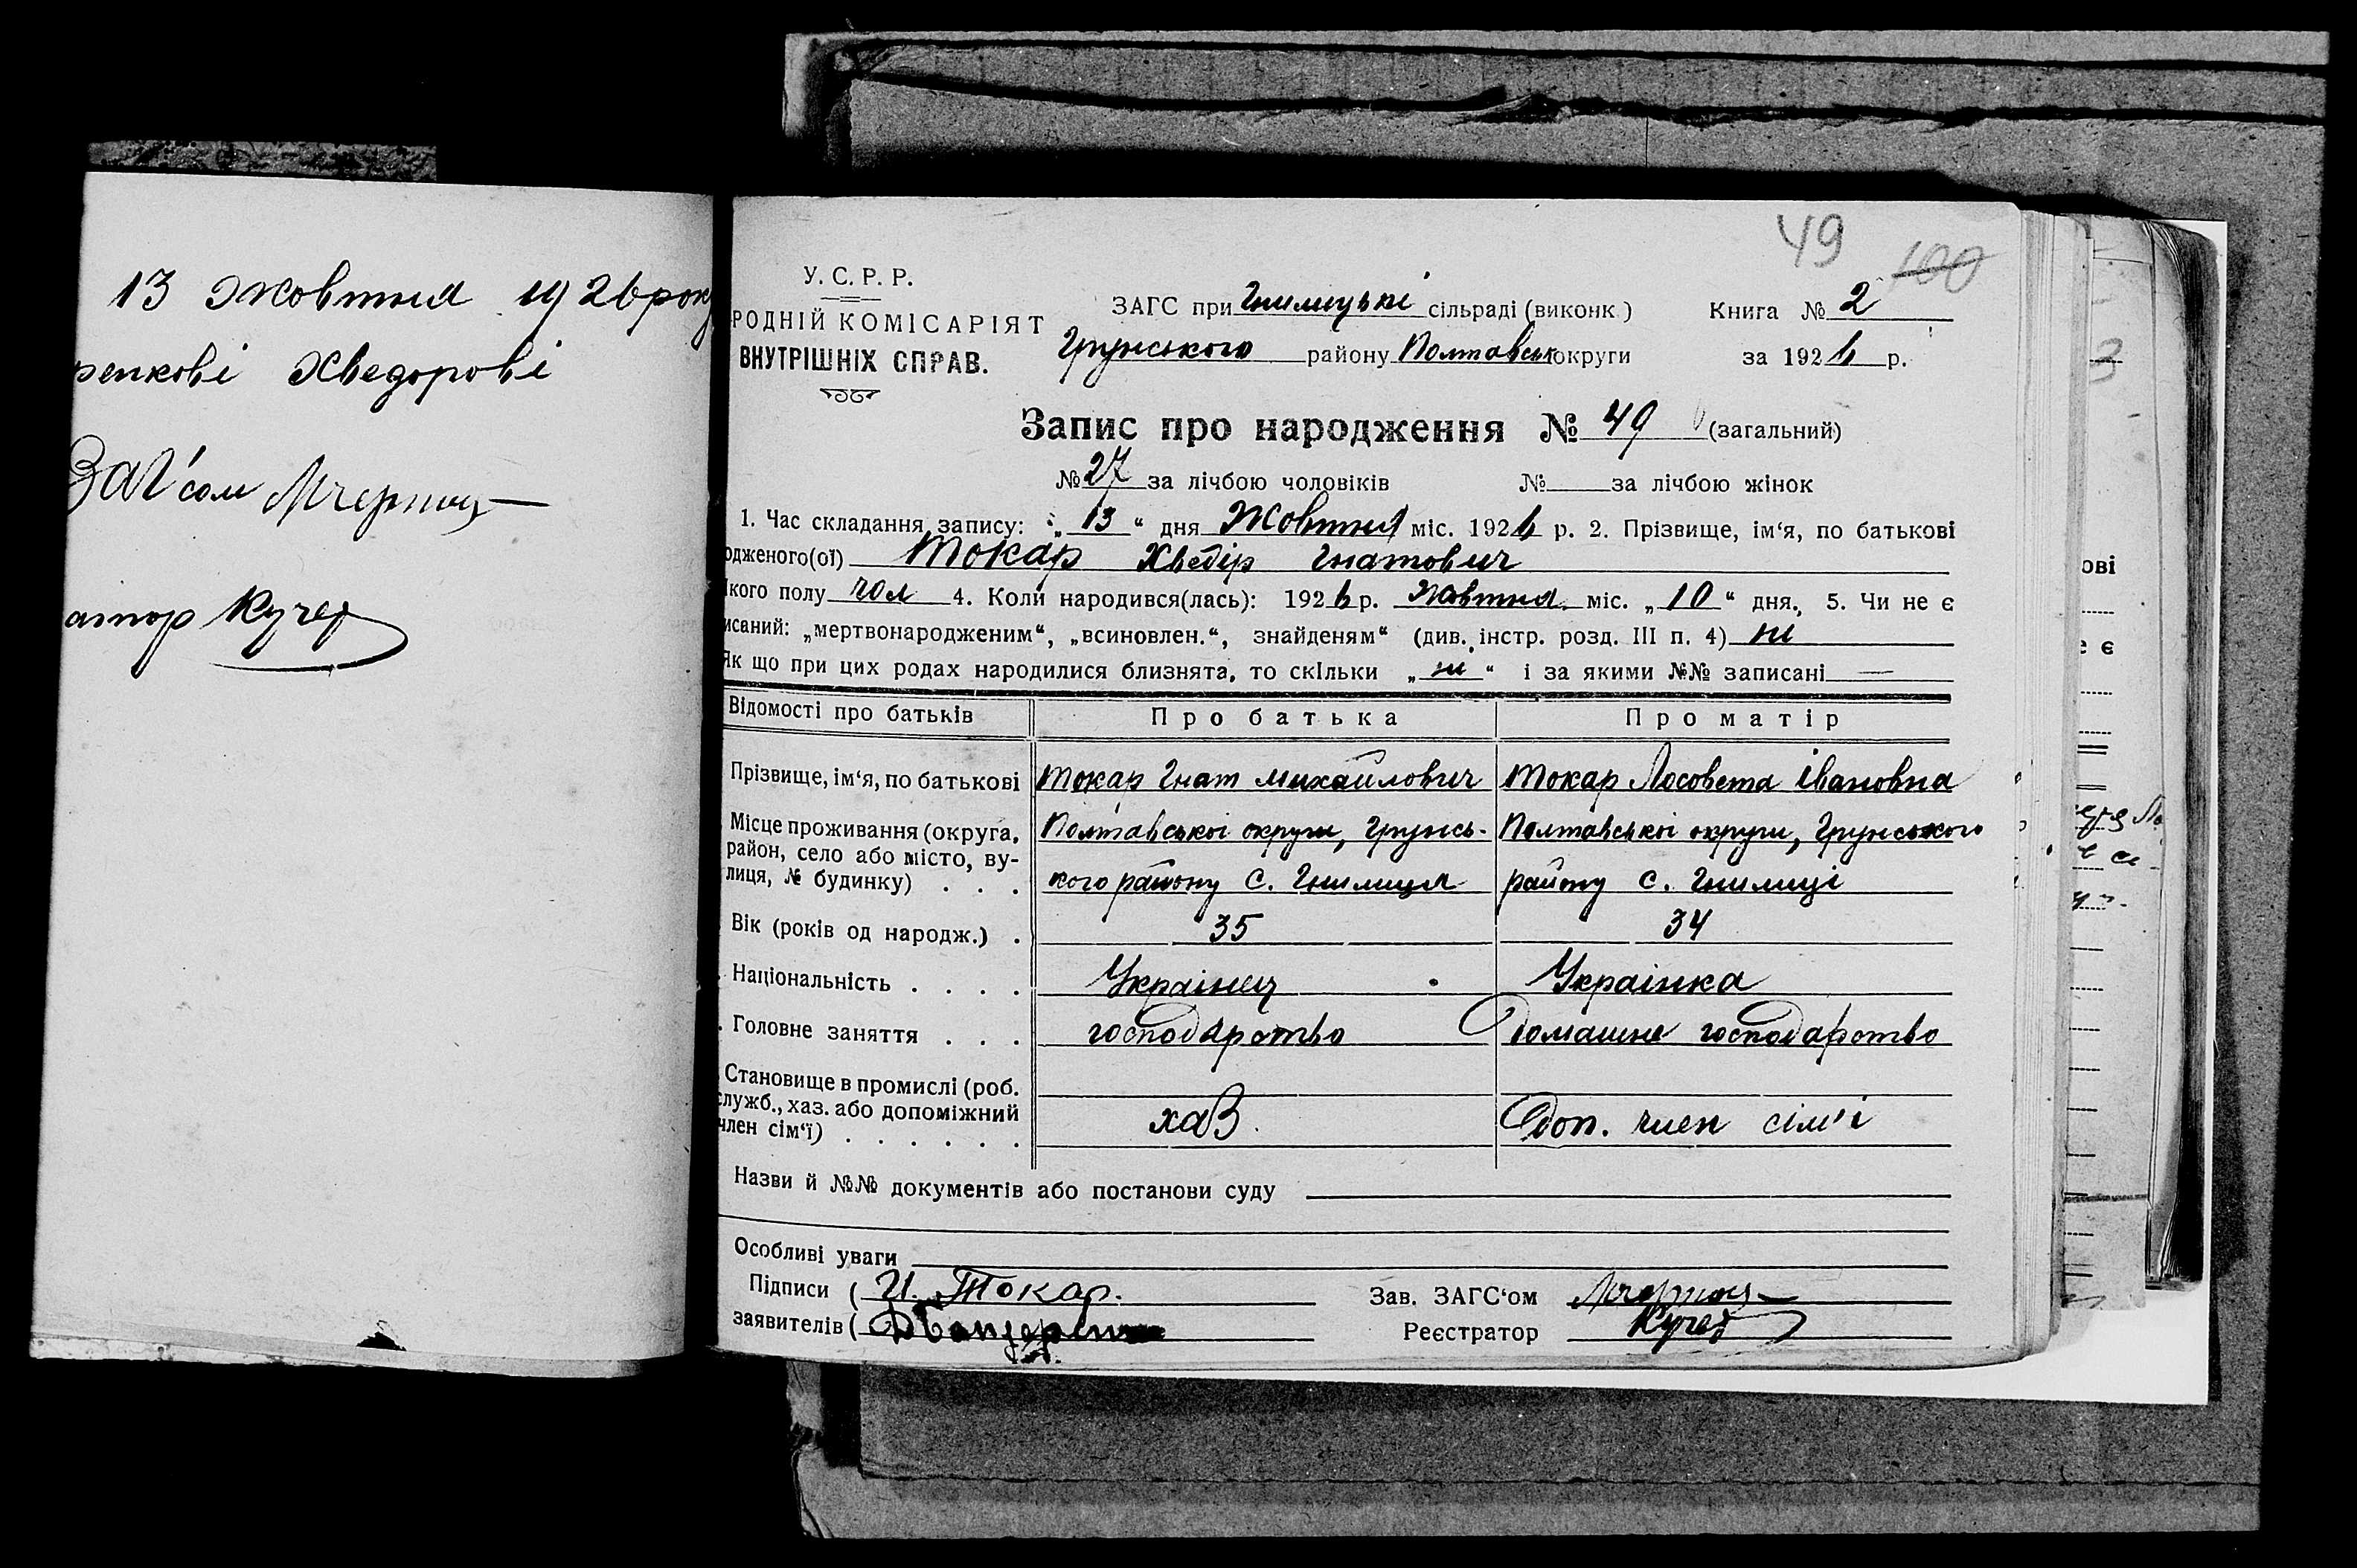 13 Жовтня 1926 року
ренкові Хведорові
ЗАГ'сом
Кучер
49 100
У. С. Р. Р.
РОДНІЙ КОМІСАРІЯТ
ВНУТРІШНІХ СПРАВ.
ЗАГС при Гнилицькі сільраді (виконк.) Книга № 2
Грунського району Полтавськ округи за 1926 р.
Запис про народження № 49 (загальний)
№ 27 за лічбою чоловіків № за лічбою жінок
1. Час складання запису: „13“ дня Жовтня міс. 1926 р. 2. Прізвище, ім‘я, по батькові
одженого(ої) Токар Хведір Гнатович
якого полу чол 4. Коли народився(лась): 1926 р. Жовтня міс. „10“ дня. 5. Чи не є
исаний: „мертвонародженим“, „всиновлен.“, знайденям“ (див. інстр. розд. III п. 4) ні
Як що при цих родах народилися близнята, то скільки „ні“ і за якими №№ записані —
Відомості про батьків Про батька Про матір
Прізвище, ім‘я, по батькові Токар Гнат Михайлович Токар Лисовета Івановна
Місце проживання (округа, Полтавської округи, Грунсь- Полтавської округи, Грунського
район, село або місто, ву-
лиця, № будинку) . . . кого району С. Гнилиця району С. Гнилиці
Вік (років од народж.) . 35 34
Національність . . . . Українец Українка
Головне заняття . . . господарство Домашне господарство
Становище в промислі (роб.
служб., хаз. або допоміжний хаз. Доп. член сім'ї
член сім‘ї) . . . . . .
Назви й №№ документів або постанови суду
Особливі уваги
Підписи ( И. Токар. Зав. ЗАГС‘ом
заявителів ( Реєстратор Кучер
ові
є